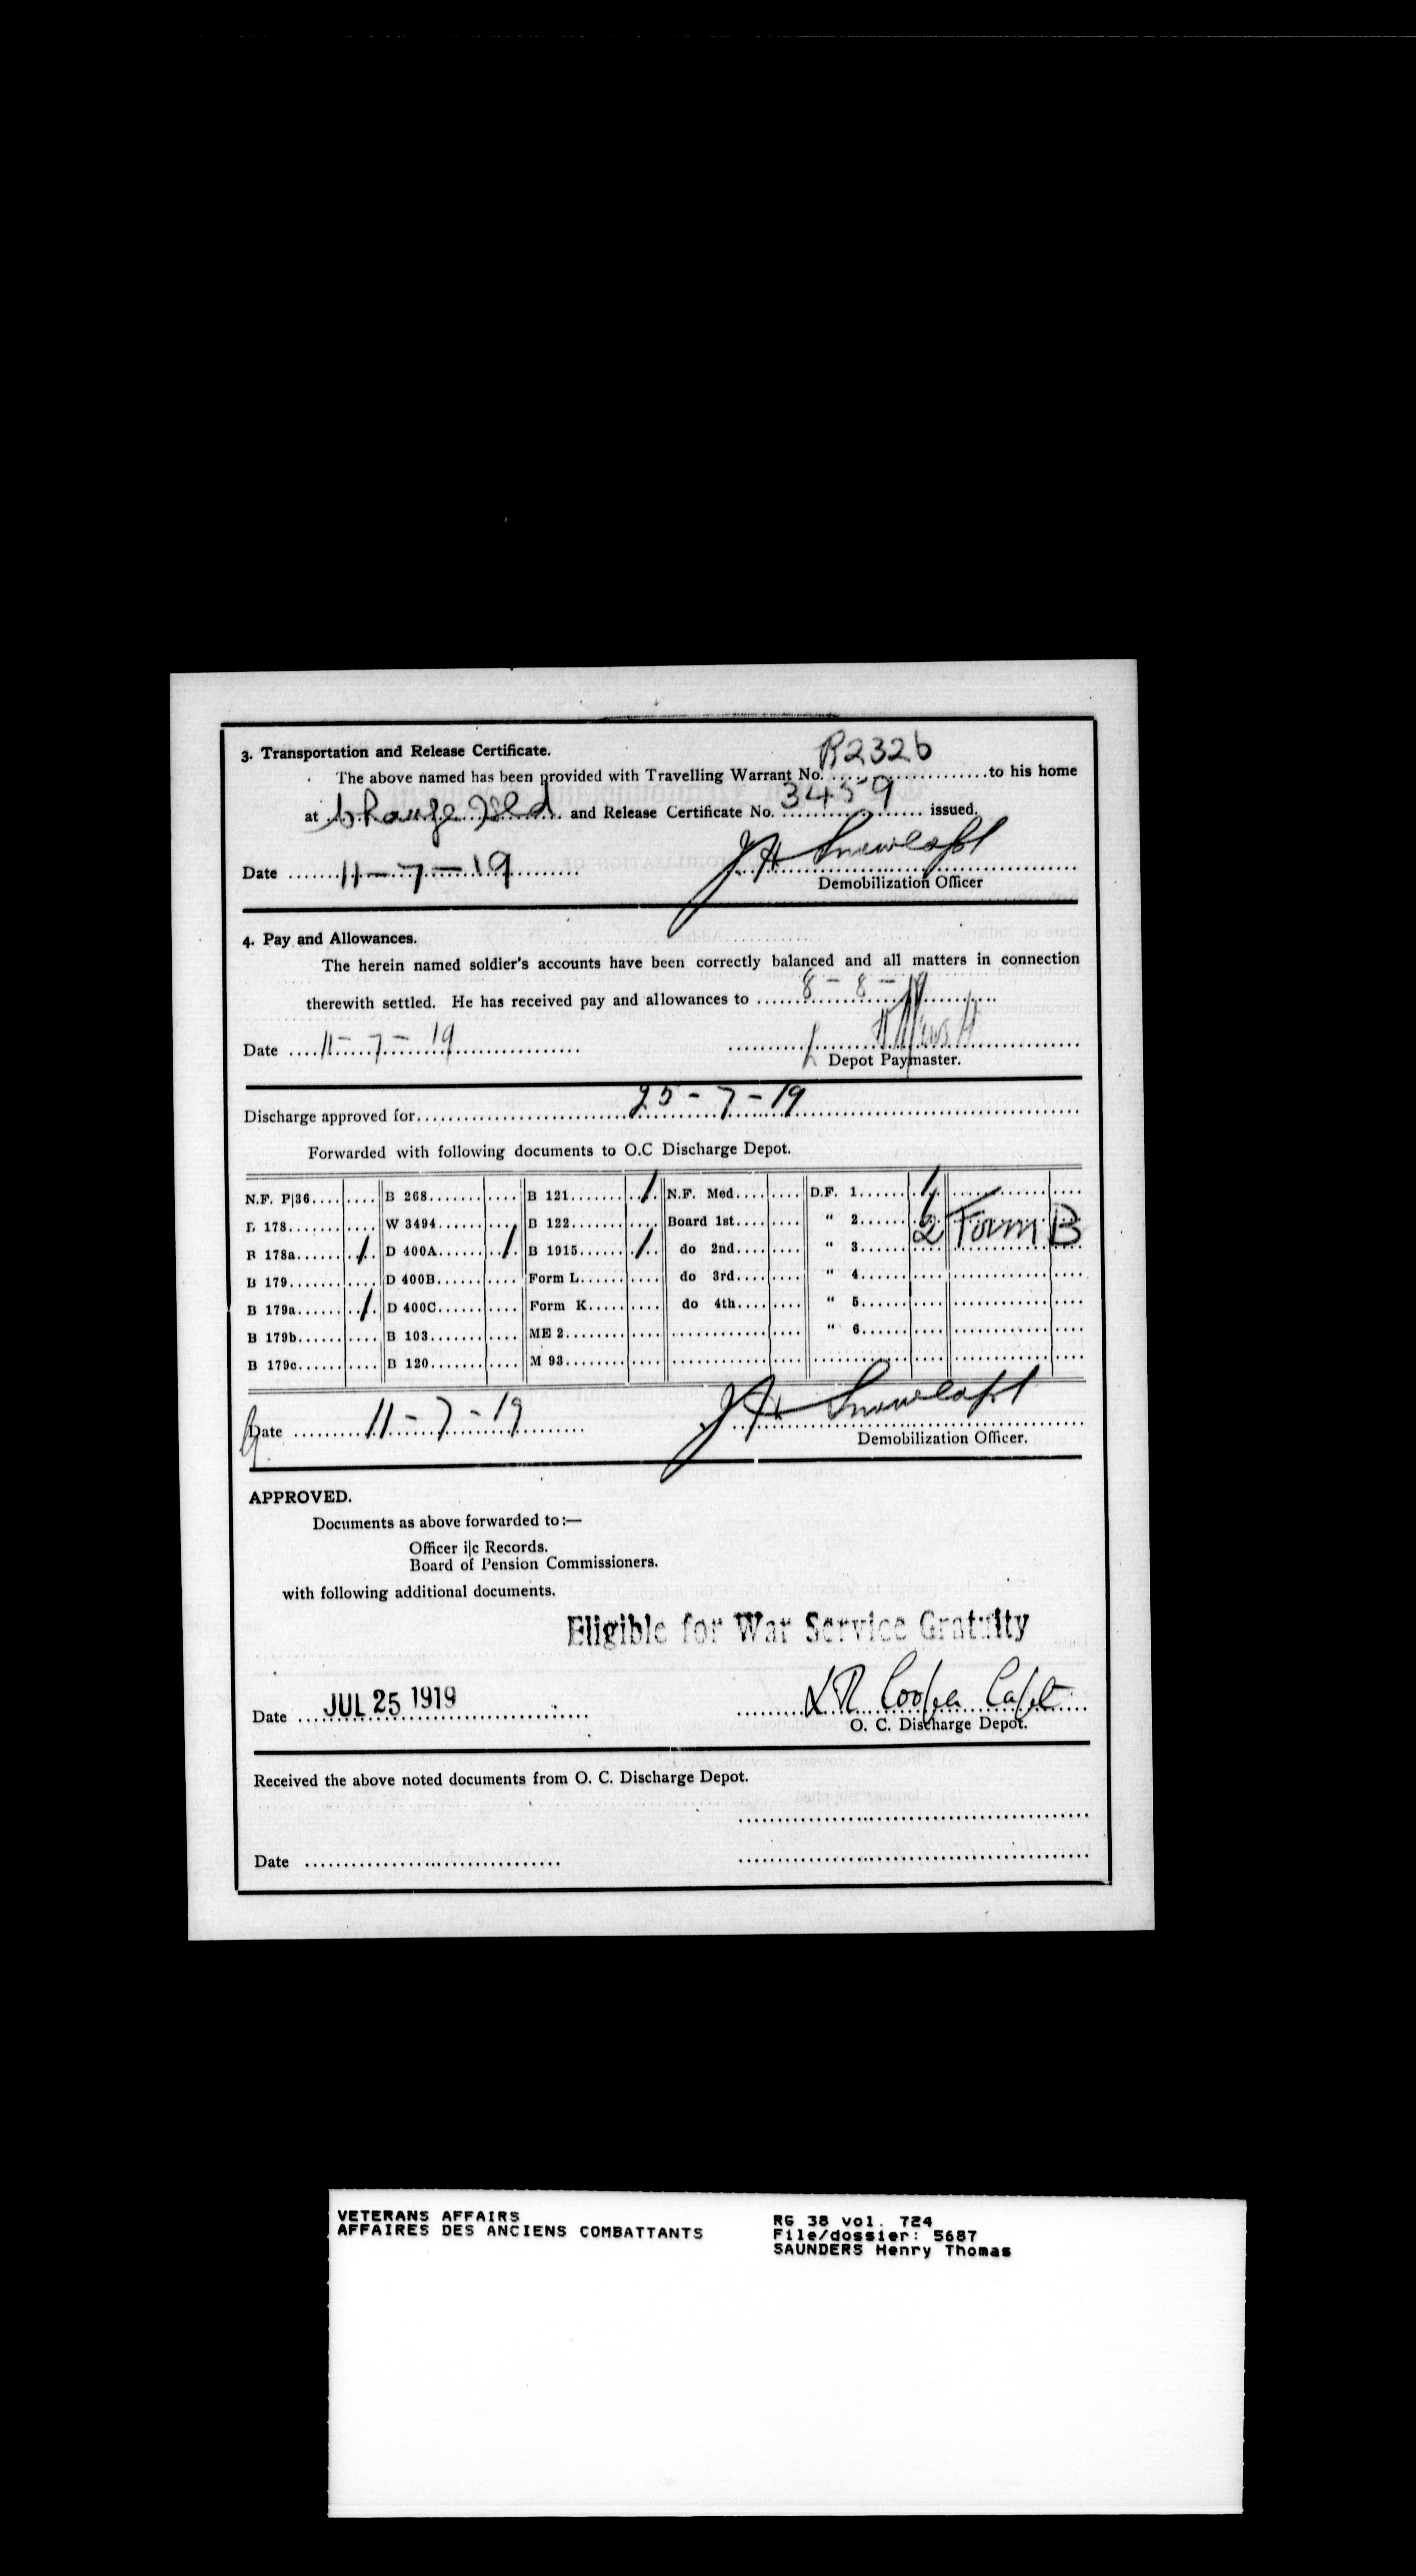 3. Transportation and Release Certificate.
R2326
The above named has been provided with Travelling Warrant No. ........ to his home
at ........ and Release Certificate No. 3459 issued.
Date 11-7-19
Demobilization Officer
4. Pay and Allowances.
The herein named soldier's accounts have been correctly balanced and all matters in connection
therewith settled. He has received pay and allowances to 8-8-19
Date 11-7-19
Depot Paymaster.
Discharge approved for 25-7-19
Forwarded with following documents to O.C Discharge Depot.
N.F. P|36 B 268 B 121 / N.F. Med. D.F. 1 1
B 178 W 3494 B 122 Board 1st " 2 Form B
B 178a / D 400A / B 1915 / do 2nd " 3 2
B 179 D 400B Form L do 3rd " 4
B 179a / D 400C Form K do 4th " 5
B 179b B 103 ME 2 " 6
B 179c B 120 M 93
Date 11-7-19
Demobilization Officer.
APPROVED.
Documents as above forwarded to:—
Officer i|c Records.
Board of Pension Commissioners.
with following additional documents.
Eligible for War Service Gratuity
Date JUL 25 1919 Cooper Capt
O. C. Discharge Depot.
Received the above noted documents from O. C. Discharge Depot.
Date
VETERANS AFFAIRS RG 38 vol. 724
AFFAIRES DES ANCIENS COMBATTANTS File/dossier: 5687
SAUNDERS Henry Thomas